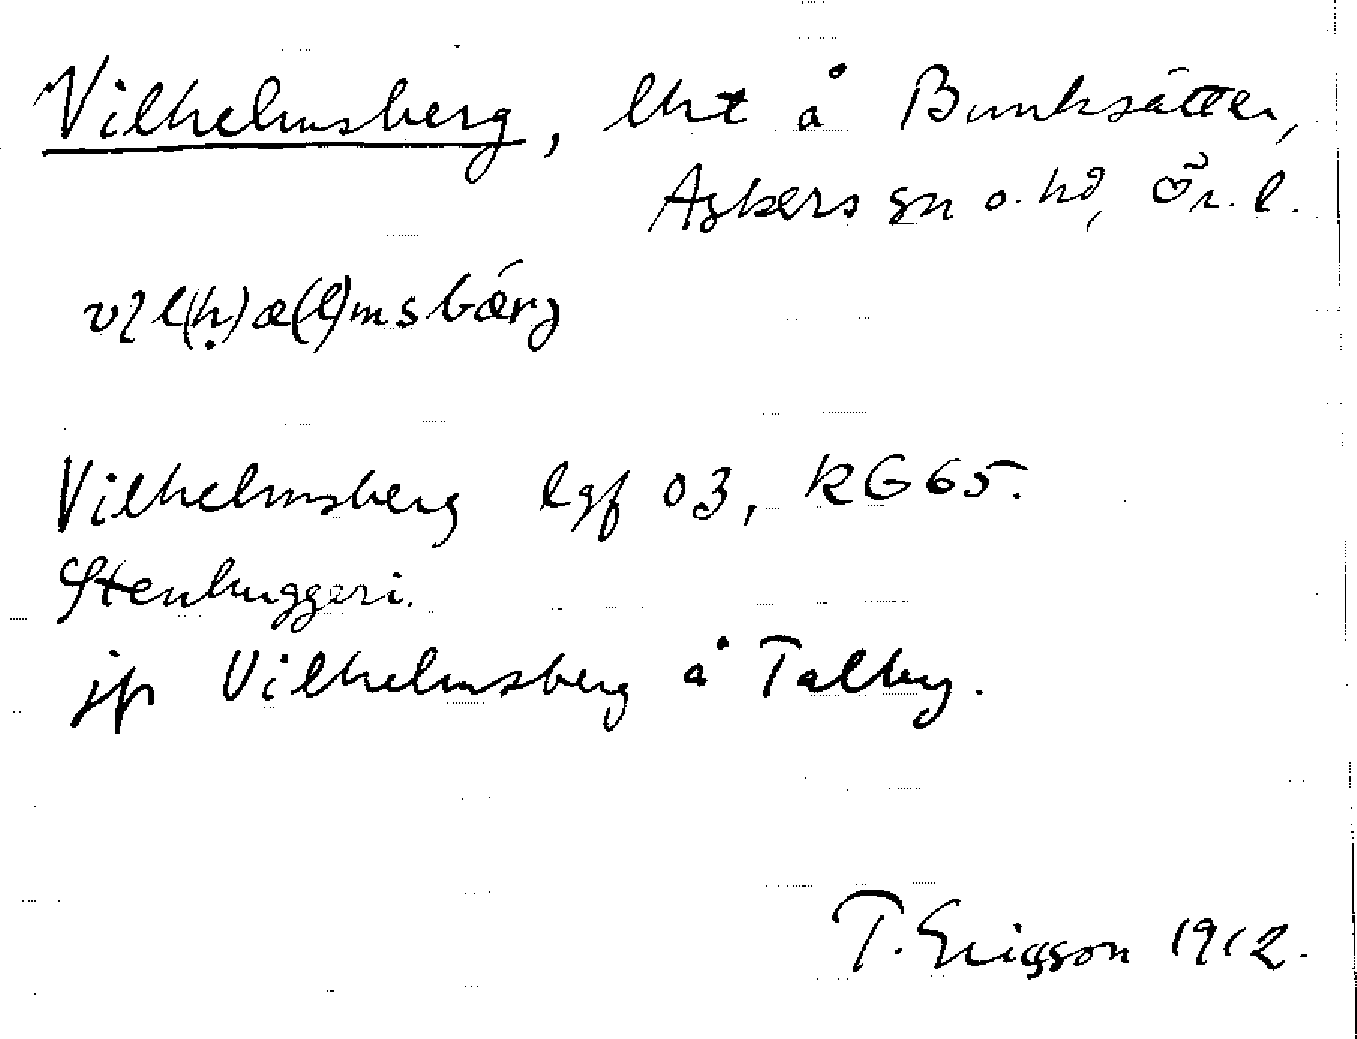 Vilhelmsberg, lht å Bunksätter,
Askers sn o. hd, Ör. l.
vɩl(h)æ(l)msbærj
Vilhelmsberg lgf 03, RG 65.
Stenhuggeri.
jfr Vilhelmsberg å Talby.
T. Ericsson 1912.